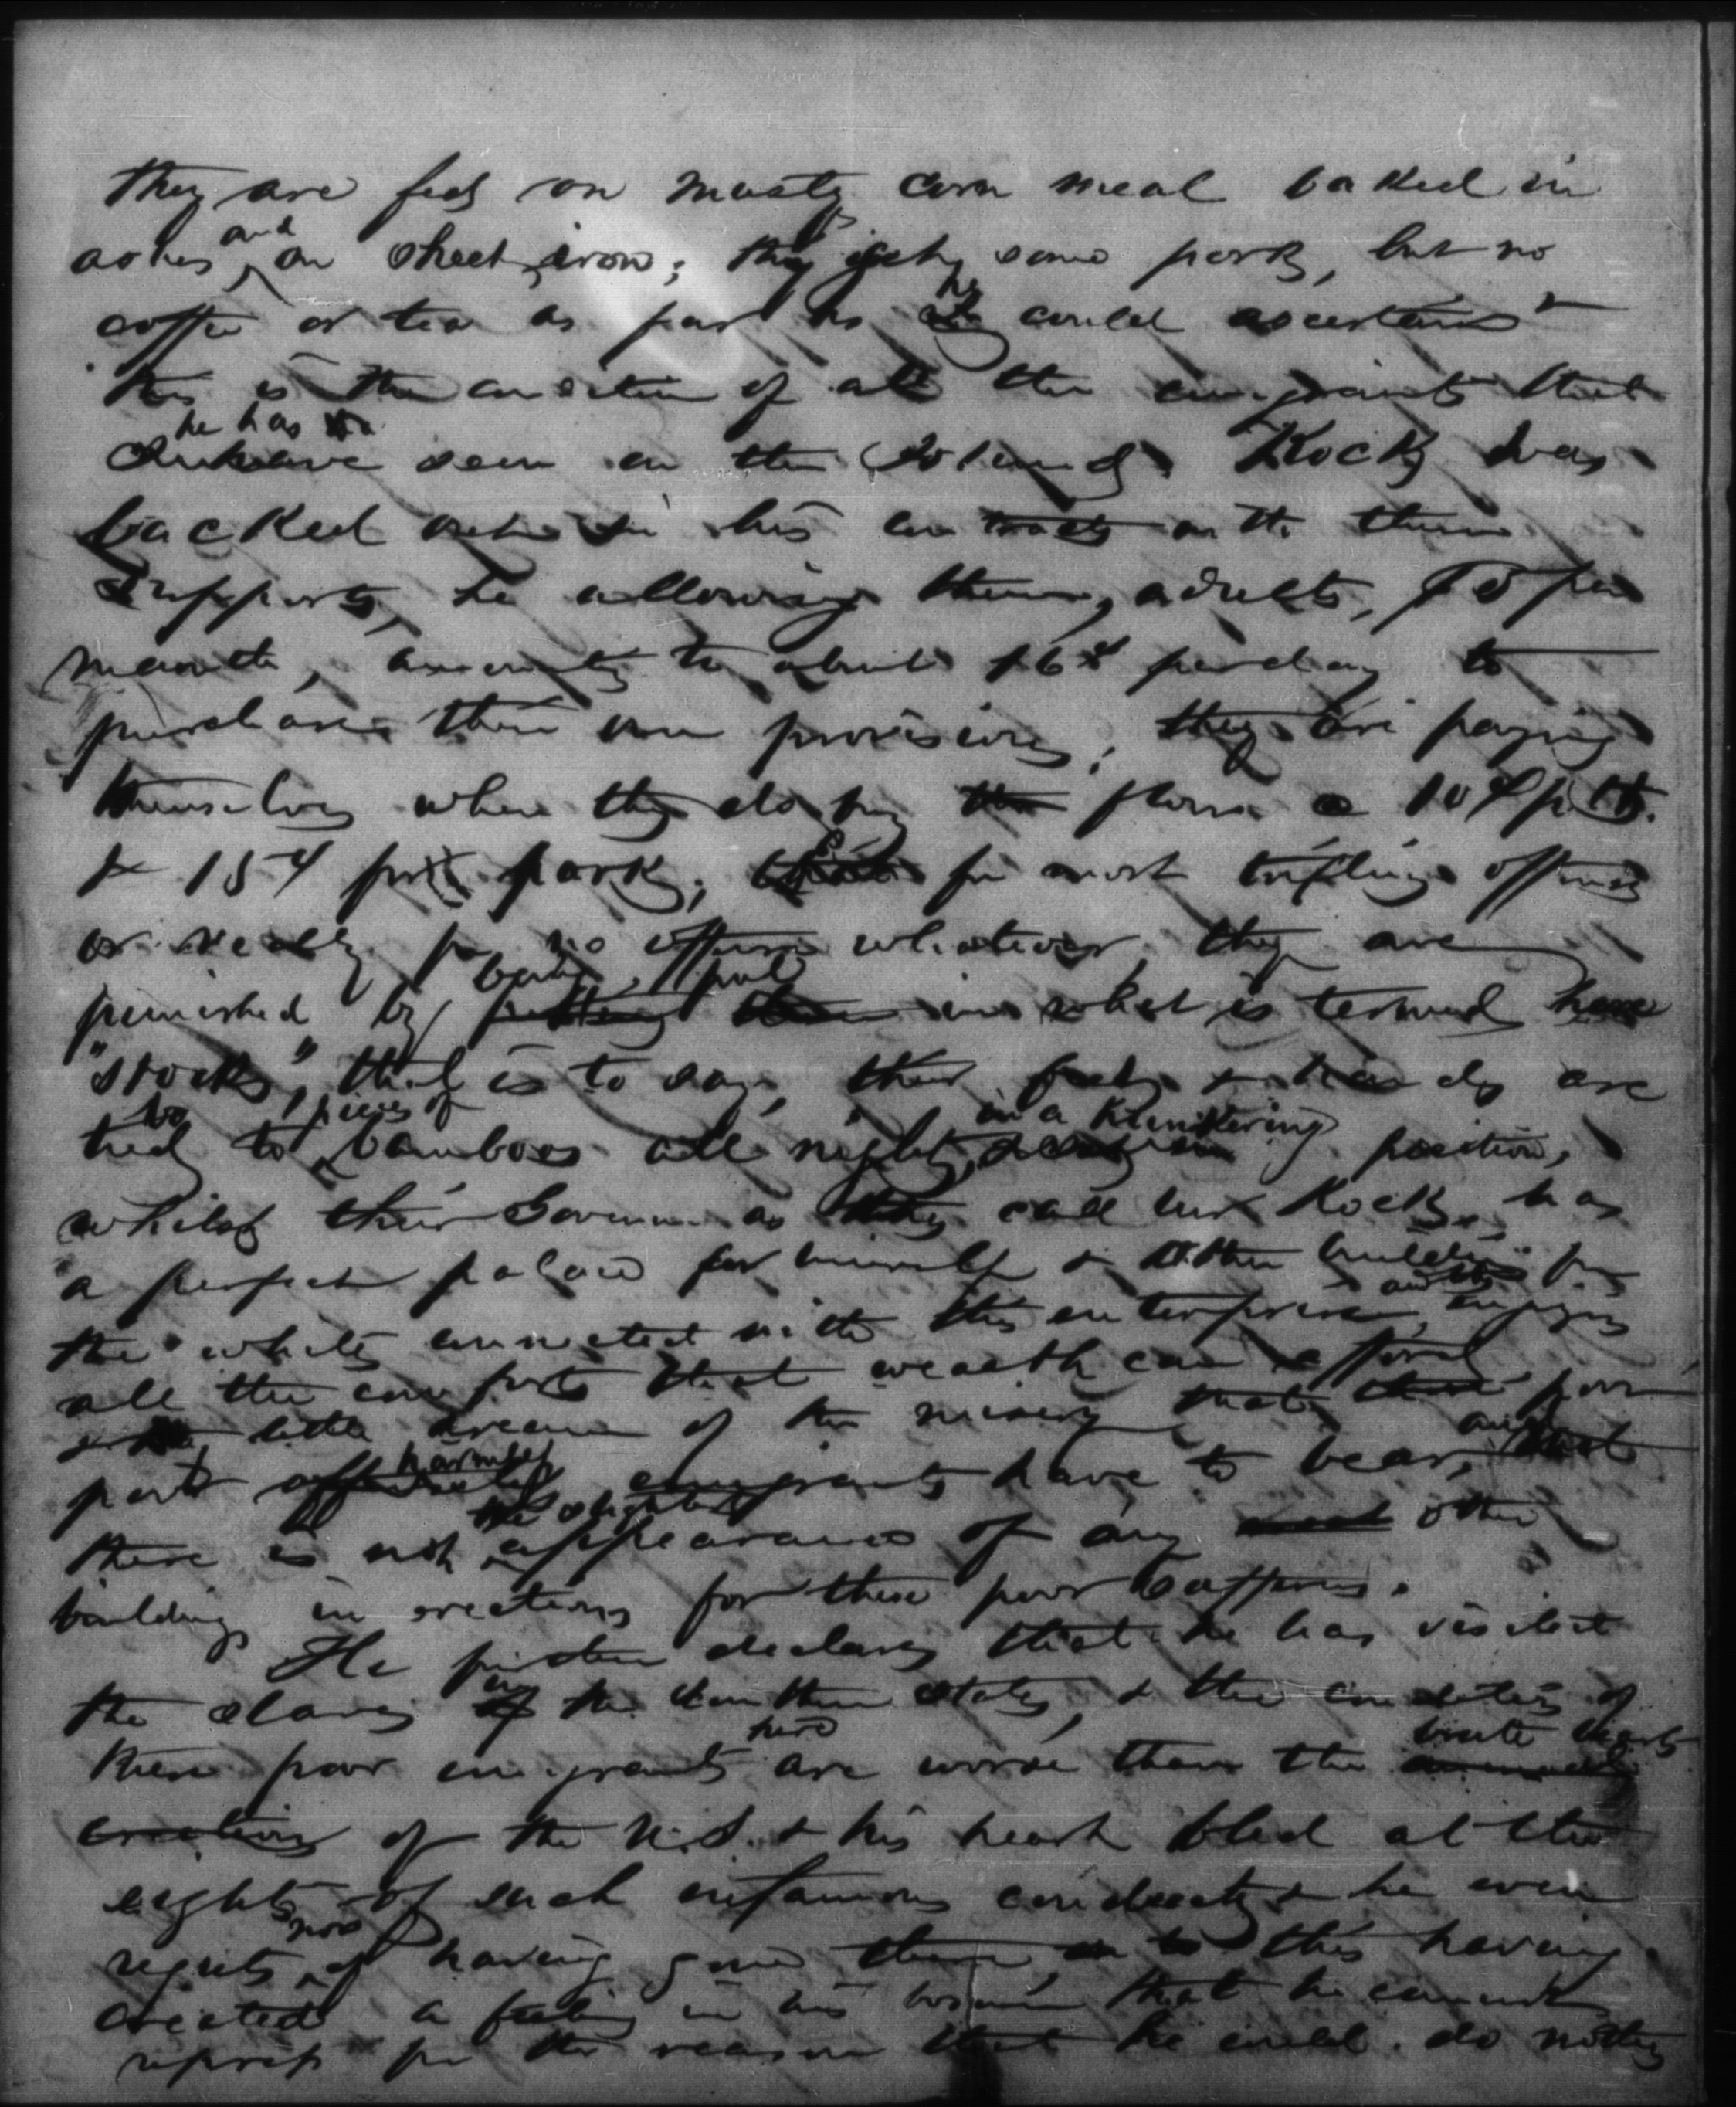 They are fed on musty corn meal baked in
ashes and on sheet iron; they get some pork, but no
coffee or tea as far as he could ascertain &
this is the condition of all the emigrants that
he has seen on the Island. Kock has
backed out in his contracts with them
supports, he allowing them, adults, $5 per
month, amounting to about 16¢ per day to
purchase their own provisions; they are paying
themselves when they do buy flour @ 10¢ p lb.
& 15¢ for pork; for most trifling offenses
or really for no offense whatever they are
punished by being put in what is termed here
"stocks," that is to say, their feet & hands are
tied to two pieces of bamboos all night, in a hunkering position,
whilst their Governor as they call him Kock, has
a perfect palace for himself & other buildings for
the whites connected with this enterprise, and enjoying
all the comforts that wealth can afford
& little dreams of the misery that poor
part harmless emigrants have to bear, and that
there is not the slightest appearance of any other
buildings in erections for these poor sufferers.
He further declares that he has visited
the slaves in the Southern States, & the condition of
these poor emigrants here are worse than the brute beasts
of the U.S. & his heart bled at the
sight of such infamous conduct & he even
regrets now of having gone there, this having
created a feeling in his bosom that he cannot
repress for the reason that he could do nothing